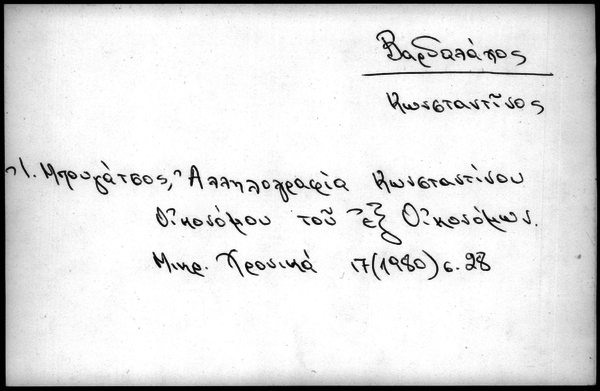 Βαρδαλάχος
Κωνσταντῖνος
Ἰ. Μπουγάτσος, Ἀλληλογραφία Κωνσταντίνου
Οἰκονόμου τοῦ ἐξ Οἰκονόμων.
Μικρ. Χρονικά 17(1980) σ. 28